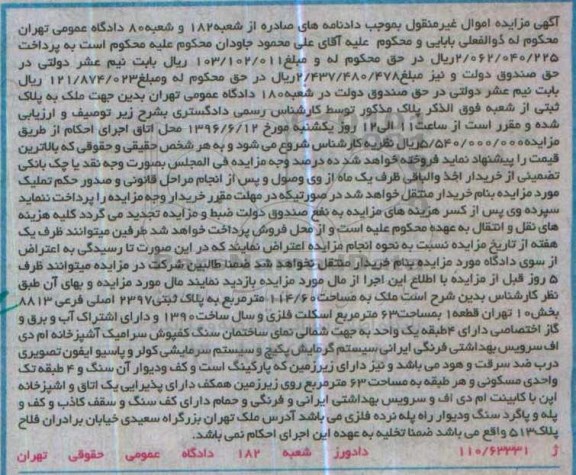 آگهی مزایده اموال غیرمنقول بموجب دادنامه های صادره از شعبه۱۸۲ و شعبه۸۰ دادگاه عمومی تهران
محکوم له ذوالفعلی بابایی و محکوم علیه آقای علی محمود جاودان محکوم علیه محکوم است به پرداخت
۲/۰۶۲/۰۴۰/۲۲۵ریال در حق محکوم له و مبلغ۱۰۳/۱۰۲/۰۱۱ ریال بابت نیم عشر دولتی در
حق صندوق دولت و نیز مبلغ۲/۴۳۷/۴۸۰/۴۷۸ریال در حق محکوم له ومبلغ۱۲۱/۸۷۴/۰۲۳ ریال
بابت نیم عشر دولتی در حق صندوق دولت در شعبه۱۸۰ دادگاه عمومی تهران بدین جهت ملک به پلاک
ثبتی از شعبه فوق الذکر پلاک مذکور توسط کارشناس رسمی دادگستری بشرح زیر توصیف و ارزیابی
شده و مقرر است از ساعت۱۱ الی۱۲ روز یکشنبه مورخ ۱۳۹۶/۶/۱۲ محل اتاق اجرای احکام از طریق
مزایده۵/۵۴۰/۰۰۰/۰۰۰ریال نظریه کارشناس شروع می شود و به هر شخص حقیقی و حقوقی که بالاترین
قیمت را پیشنهاد نماید فروخته خواهد شد ده در صد وجه مزایده فی المجلس بصورت وجه نقد یا چک بانکی
تضمینی از خریدار اخذ والباقی ظرف یک ماه از وی وصول و پس از انجام مراحل قانونی و صدور حکم تملیک
مورد مزایده بنام خریدار منتقل خواهد شد در صورتیکه در مهلت مقرر خریدار وجه مزایده را پرداخت ننماید
سپرده وی پس از کسر هزینه های مزایده به نفع صندوق دولت ضبط و مزایده تجدید می گردد کلیه هزینه
های نقل و انتقال به عهده محکوم علیه است و از محل فروش پرداخت خواهد شد طرفین میتوانند ظرف یک
هفته از تاریخ مزایده نسبت به نحوه انجام مزایده اعتراض نمایند که در این صورت تا رسیدگی به اعتراض
از سوی دادگاه مورد مزایده بنام خریدار منتقل نخواهد شد ضمنا طالبین شرکت در مزایده میتوانند ظرف
۵ روز قبل از مزایده با اطلاع این اجرا از مال مورد مزایده بازدید نمایند مال مورد مزایده و بهای آن طبق
نظر کارشناس بدین شرح است ملک به مساحت۱۱۴/۶۰ مترمربع به پلاک ثبتی۲۳۹۷ اصلی فرعی ۸۸۱۳
بخش۱۰ تهران قطعه۱ بمساحت۶۳ مترمربع اسکلت فلزی و سال ساخت۱۳۹۰ و دارای اشتراک آب و برق و
گاز اختصاصی دارای ۴طبقه یک واحد به جهت شمالی نمای ساختمان سنگ کفپوش سرامیک آشپزخانه ام دی
اف سرویس بهداشتی فرنگی ایرانی سیستم گرمایش پکیج و سیستم سرمایشی کولر و پاسیو ایفون تصویری
درب ضد سرقت و هود می باشد و نیز دارای زیرزمین که پارکینگ است و کف ودیوار آن سنگ و ۴ طبقه تک
واحدی مسکونی و هر طبقه به مساحت ۶۳ مترمربع روی زیرزمین همکف دارای پذیرایی یک اتاق و اشپزخانه
اپن با کابینت ام دی اف و سرویس بهداشتی ایرانی و فرنگی و حمام دارای کف سنگ و سقف کاذب و کف و
پله و پاگرد سنگ ودیوار راه پله نرده فلزی می باشد آدرس ملک تهران بزرگراه سعیدی خیابان برادران فلاح
پلاک۵۱۳ واقع می باشد ضمنا تخلیه به عهده این اجرای احکام نمی باشد.
ژ ۱۱۰/۶۳۳۳۱ دادورز شعبه ۱۸۲ دادگاه عمومی حقوقی تهران